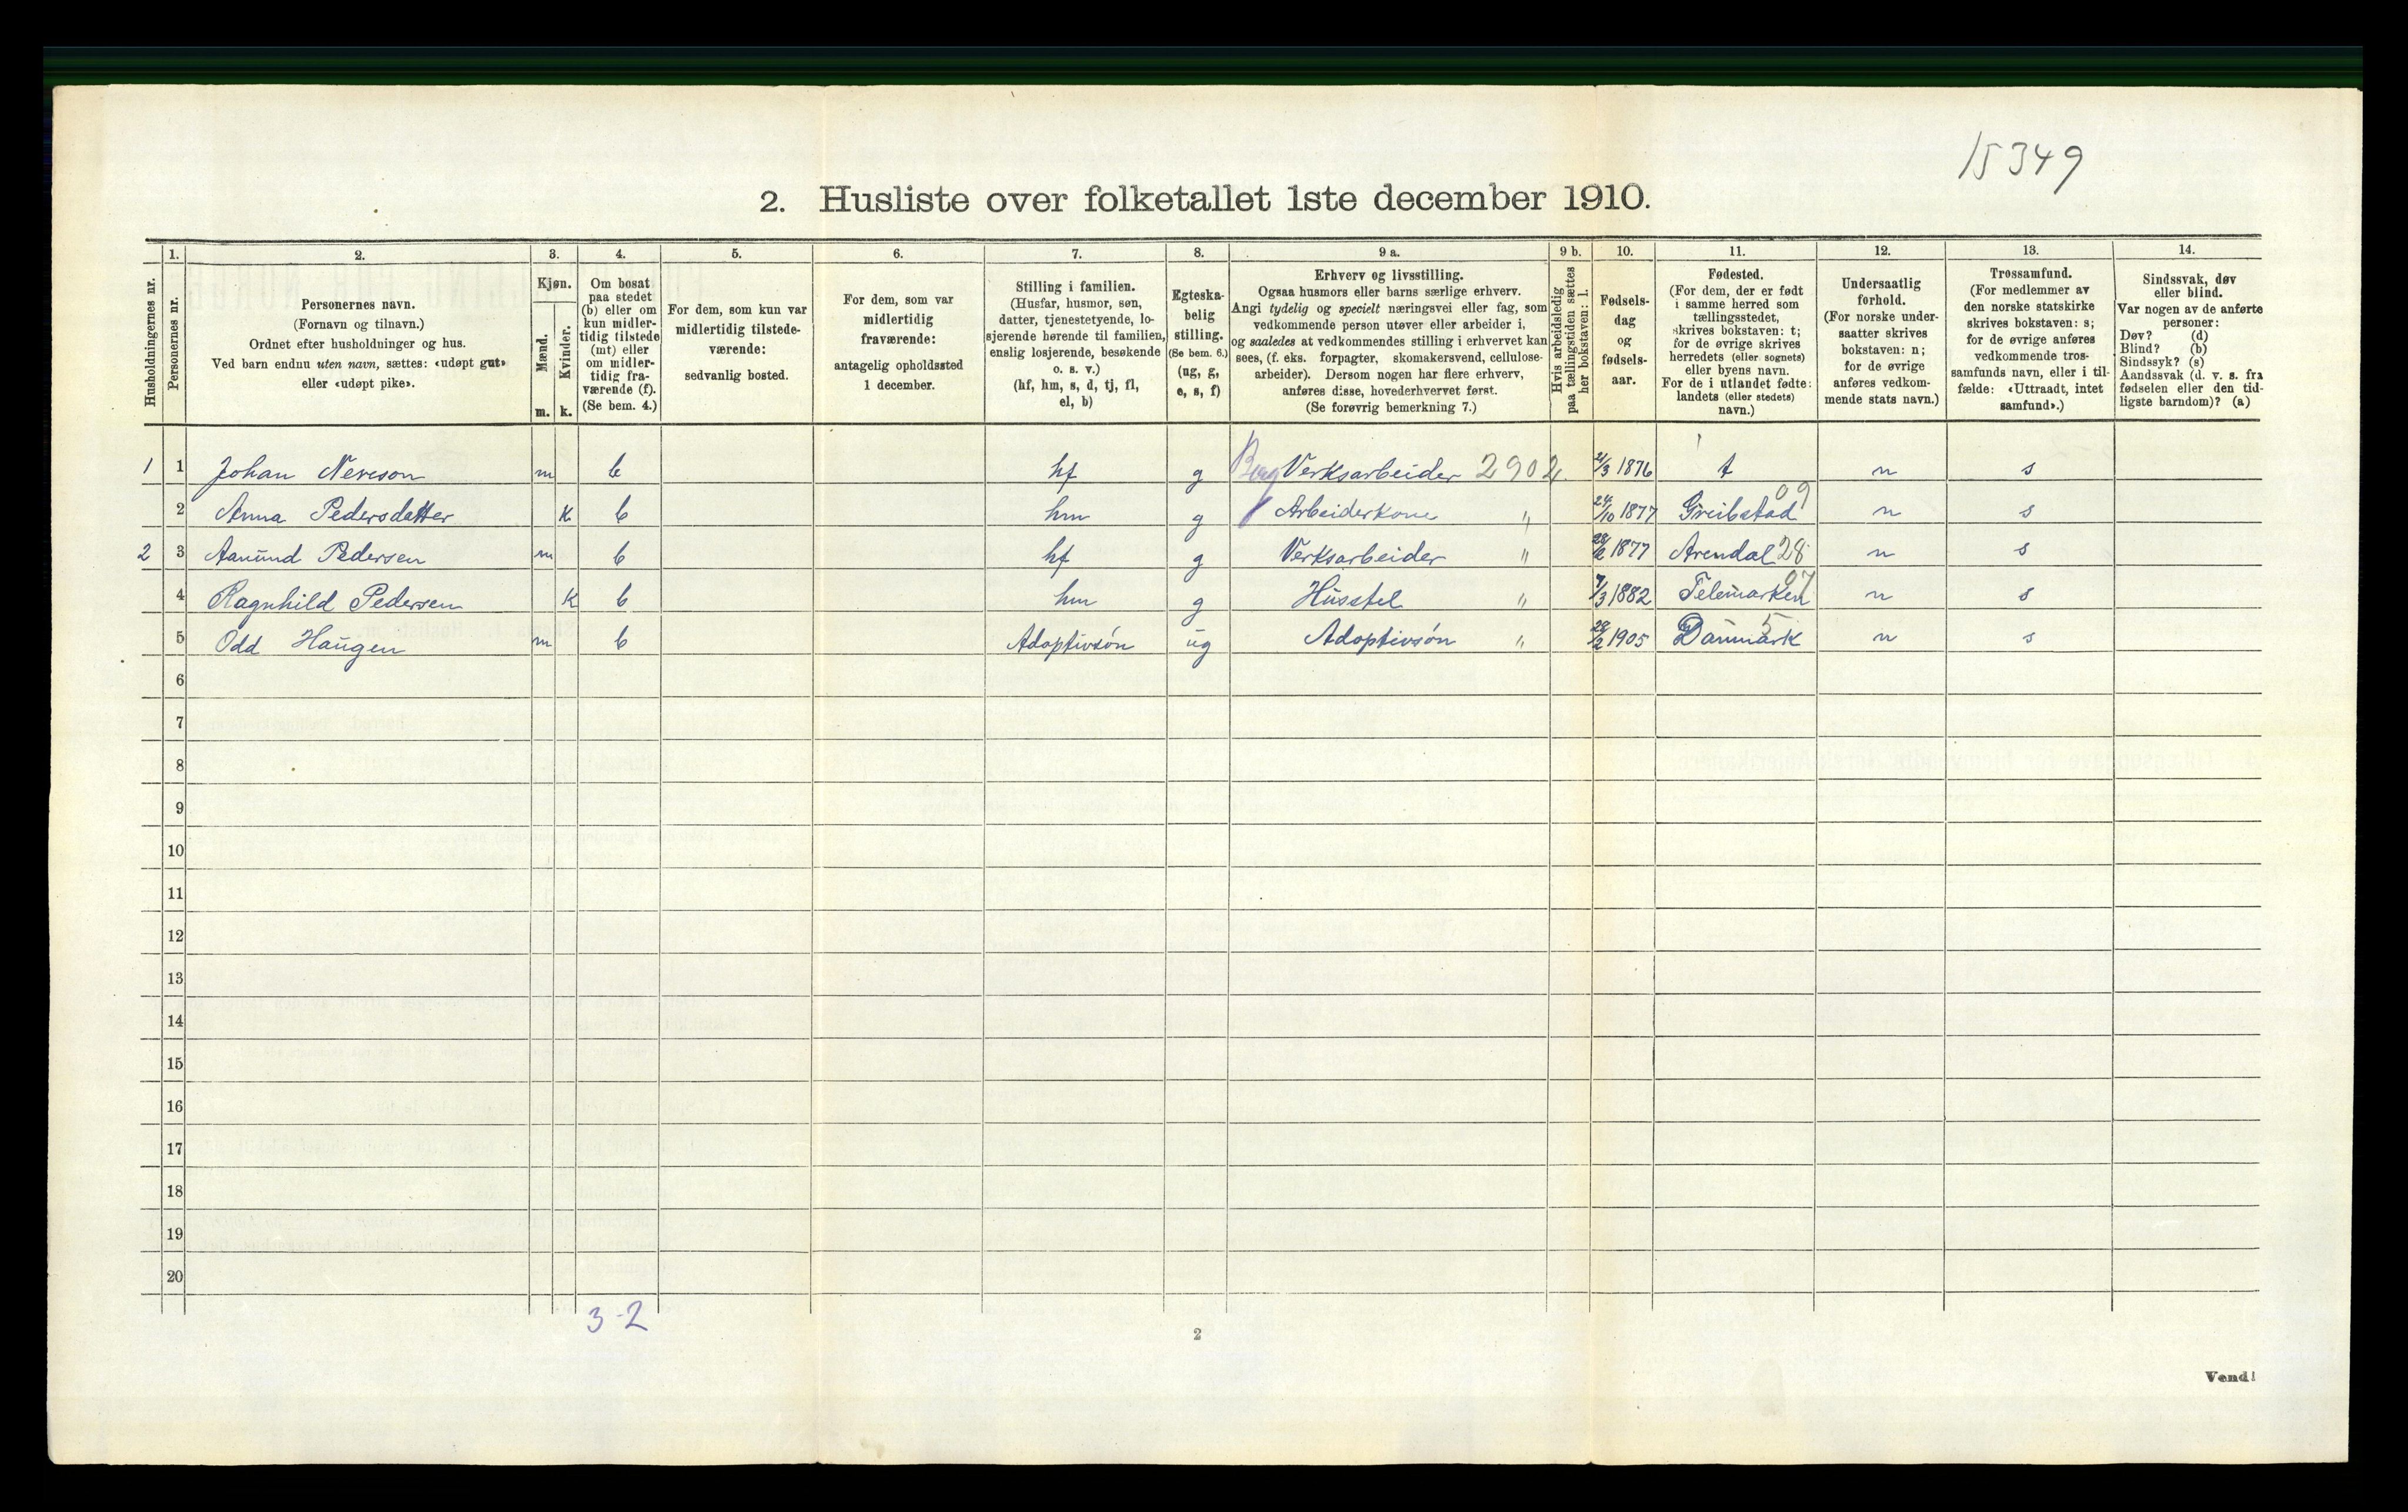 15349
2. Husliste over folketallet 1ste december 1910.
Husholdningernes nr.
1.
Personernes nr.
2.
Personernes navn.
(Fornavn og tilnavn.)
Ordnet efter husholdninger og hus.
Ved barn endnu uten navn, sættes: «udøpt gut»
eller «udøpt pike».
3.
Kjøn.
Mænd.
Kvinder.
m. k.
4.
Om bosat
paa stedet
(b) eller om
kun midler-
tidig tilstede
(mt) eller
om midler-
tidig fra-
værende (f).
(Se bem. 4.)
5.
For dem, som kun var
midlertidig tilstede-
værende:
sedvanlig bosted.
6.
For dem, som var
midlertidig
fraværende:
antagelig opholdssted
1 december.
7.
Stilling i familien.
(Husfar, husmor, søn,
datter, tjenestetyende, lo-
sjerende hørende til familien,
enslig losjerende, besøkende
o. s. v.)
(hf, hm, s, d, tj, fl,
el, b)
8.
Egteska-
belig
stilling.
(Se bem. 6.)
(ug, g,
e, s, f)
9 a.
Erhverv og livsstilling.
Ogsaa husmors eller barns særlige erhverv.
Angi tydelig og specielt næringsvei eller fag, som
vedkommende person utøver eller arbeider i,
og saaledes at vedkommendes stilling i erhvervet kan
sees, (f. eks. forpagter, skomakersvend, cellulose-
arbeider). Dersom nogen har flere erhverv,
anføres disse, hovederhvervet først.
(Se forøvrig bemerkning 7.)
9 b.
Hvis arbeidsledig
paa tællingstiden sættes
her bokstaven: l.
10.
Fødsels-
dag
og
fødsels-
aar.
11.
Fødested.
(For dem, der er født
i samme herred som
tællingsstedet,
skrives bokstaven: t;
for de øvrige skrives
herredets (eller sognets)
eller byens navn.
For de i utlandet fødte:
landets (eller stedets)
navn.)
12.
Undersaatlig
forhold.
(For norske under-
saatter skrives
bokstaven: n;
for de øvrige
anføres vedkom-
mende stats navn.)
13.
Trossamfund.
(For medlemmer av
den norske statskirke
skrives bokstaven: s;
for de øvrige anføres
vedkommende tros-
samfunds navn, eller i til-
fælde: «Uttraadt, intet
samfund».)
14.
Sindssvak, døv
eller blind.
Var nogen av de anførte
personer:
Døv? (d)
Blind? (b)
Sindssyk? (s)
Aandssvak (d. v. s. fra
fødselen eller den tid-
ligste barndom)? (a)
1 1 Johan Neveson m b hf g Berg Verksarbeider 2902 /3 1876 t n s
2 Anna Pedersdatter k b hm g Arbeiderkone " 24/10 1877 Greibstad 09 n s
2 3 Aanund Pedersen m b hf g Verksarbeider " 1877 Arendal 28 n s
4 Ragnhild Pedersen k b hm g Husstel " 7/3 1882 Telemarken 07 n s
5 Odd Haugen m b Adoptivsøn ug Adoptivsøn " 28/2 1905 Danmark 5 n s
6
7
8
9
10
11
12
13
14
15
16
17
18
19
20
3-2
2
Vend!